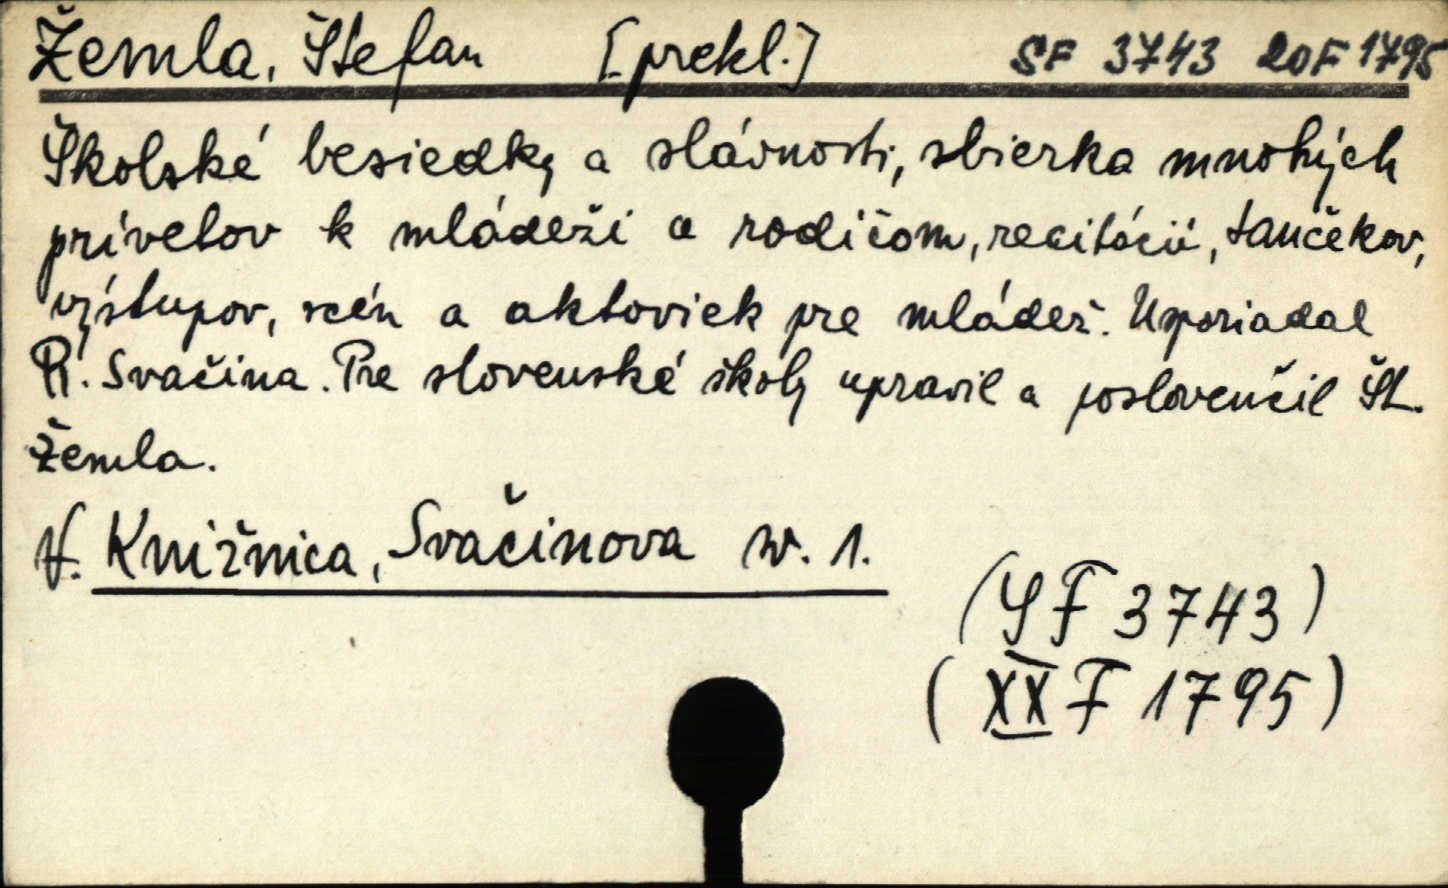 Žemla, Štefan [prekl.] SF 3743 20F1795
Školské besiedky a slávnosti, sbierka mnohých
prívetov k mládeži a rodičom, recitácií, tančekov,
výstupov, scén a aktoviek pre mládež. Usporiadal
R. Svačina. Pre slovenské školy upravil a poslovenčil Št.
Žemla.
V. Knižnica, Svačinova sv. 1.
(SF 3743)
(XX F 1795)